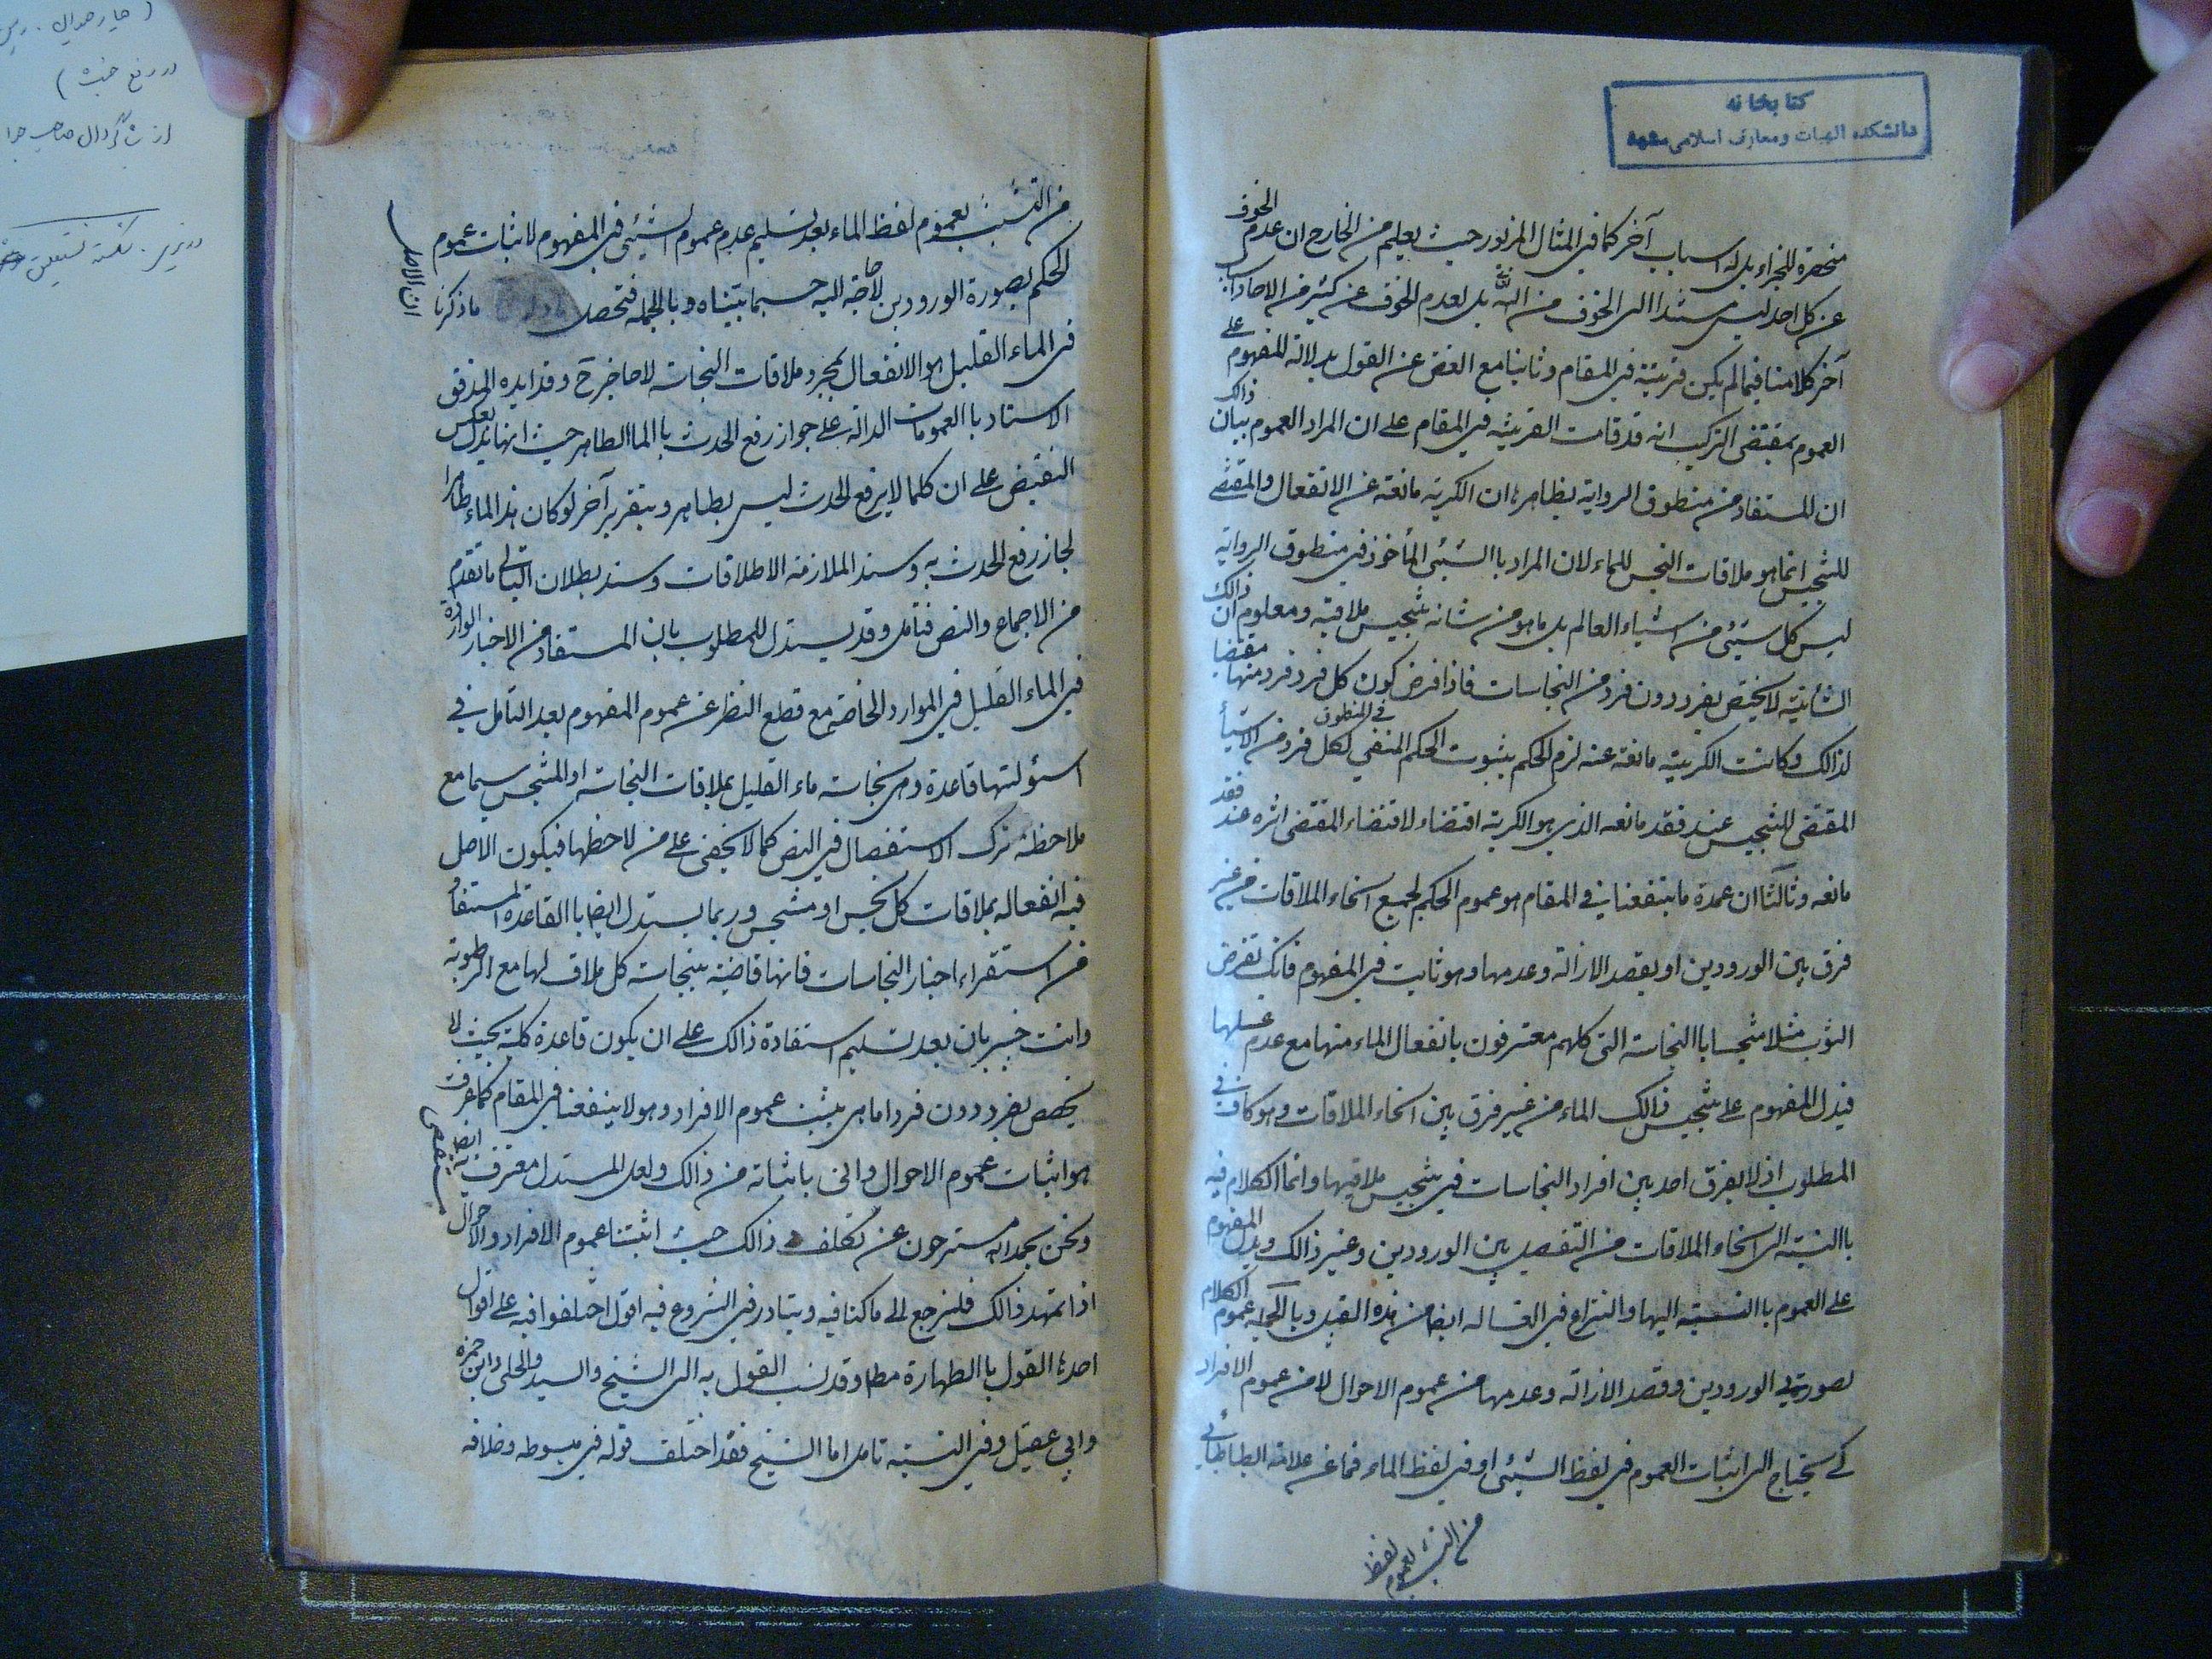 كتابخانه
دانشكده الهيات ومعارف اسلامى مشهد
منحصرة للجزاء بل له اسباب آخر كما في المثال المزبور حيث يعلم من الخارج ان عدم الخوف
عن كل احد ليس مستندا الى الخوف من الله بل لعدم الخوف عن كثير من الاحاد اسباب
آخر كلامنا فيما لم يكن قرينة في المقام وثانيا مع الغض عن القول بدلالة المفهوم على
العموم بمقتضى التركيب انه قد قامت القرينة في المقام على ان المراد العموم بيان ذالك
ان المستفاد من منطوق الرواية بظاهرها ان الكرية مانعة عن الانفعال والمقتضى
للتنجيس انما هو ملاقات النجس للماء لان المراد باالشيئى المأخوذ في منطوق الرواية
ليس كل شيئى من اشياء العالم بل ما هو من شانه تنجيس ملاقيه ومعلوم ان ذالك
الشانية لا يختص بفرد دون فرد من النجاسات فاذا فرض كون كل فرد فرد منها مقتضيا
لذالك وكانت الكرية مانعة عنه لزم الحكم بثبوت الحكم المنفي في المنطوق لكل فرد من الاشياء
المقتضى للتنجيس عند فقد مانعه الذي هو الكرية اقتضاء لاقتضاء المقتضى اثره عند فقد
مانعه وثالثا ان عمدة ما ينفعنا في المقام هو عموم الحكم لجميع انحاء الملاقات من غير
فرق بين الورودين او بقصد الازالة وعدمها وهو ثابت في المفهوم فانك تفرض
الثوب مثلا متنجسا باالنجاسة التى كلهم معترفون بانفعال الماء منها مع عدم غسلها
فيدل المفهوم على تنجيس ذالك الماء من غير فرق بين انحاء الملاقات وهو كاف في
المطلوب اذ لا يفرق احد بين افراد النجاسات في تنجيس ملاقيها وانما الكلام فيه
باالنسبة الى انحاء الملاقات من التفصيل بين الورودين وغير ذالك ويدل المفهوم
على العموم باالنسبة اليها والنزاع في الغسالة ايضا من هذه القبيل وباالجملة عموم الكلام
لصورتي الورودين وقصد الازالة وعدمها من عموم الاحوال لا من عموم الافراد
كے يحتاج الى اثبات العموم في لفظ الشيئى او في لفظ الماء فما عن علامة الطباطبائي
من التشبث بعموم لفظ
من التشبث بعموم لفظ الماء بعد تسليم عدم عموم الشيئى في المفهوم لاثبات عموم
الحكم بصورة الورودين لا حاجة اليه حسبما بيناه وبالجملة فتحصل ما ذكرنا ان الاصل
في الماء القليل هو الانفعال بمجرد ملاقات النجاسة لا ما خرج وقد ايده المدقق
الاستاد باالعمومات الدالة على جواز رفع الحدث باالماء الطاهر حيث انها تدل بعكس
النقيض على ان كلما لا يرفع الحدث ليس بطاهر وبتقرير آخر لو كان هذا الماء طاهرا
لجاز رفع الحدث به وسند الملازمة الاطلاقات وسند بطلان التالى ما تقدم
من الاجماع والنص فتامل وقد يستدل للمطلوب بان المستفاد من الاخبار الواردة
في الماء القليل في الموارد الخاصة مع قطع النظر عن عموم المفهوم بعد التامل في
اسئولتها قاعدة وهى نجاسة ماء القليل بملاقات النجاسة او المتنجس سيما مع
ملاحظة ترك الاستفصال في النص كما لا يخفى على من لاحظها فيكون الاصل
فيه انفعاله بملاقات كل نجس او متنجس وربما يستدل ايضا باالقاعدة المستفادة
من استقراء اخبار النجاسات فانها قاضية بنجاسة كل ملاق لها مع الرطوبة
وانت خبير بان بعد تسليم استفادة ذالك على ان يكون قاعدة كلية بحيث لا
يخص بفرد دون فرد اما هي يثبت عموم الافراد وهو لا ينفعنا في المقام كما عرفت
هو اثبات عموم الاحوال وانى باثباته من ذالك ولعل المستدل معترف به ايضا
ونحن بحمد الله مستريحون عن تكلف ذالك حيث اثبتنا عموم الافراد والاحوال
اذا تمهد ذالك فلنرجع الى ما كنا فيه ويتبادر في الشروع فيه اقول اختلفوا فيه على اقوال
احدها القول باالطهارة مطلقا وقد نسب القول به الى الشيخ والسيد والحلى وابن حمزة
وابي عقيل وفي النسبة تامل اما الشيخ فقد اختلف قوله في مبسوطه وخلافه